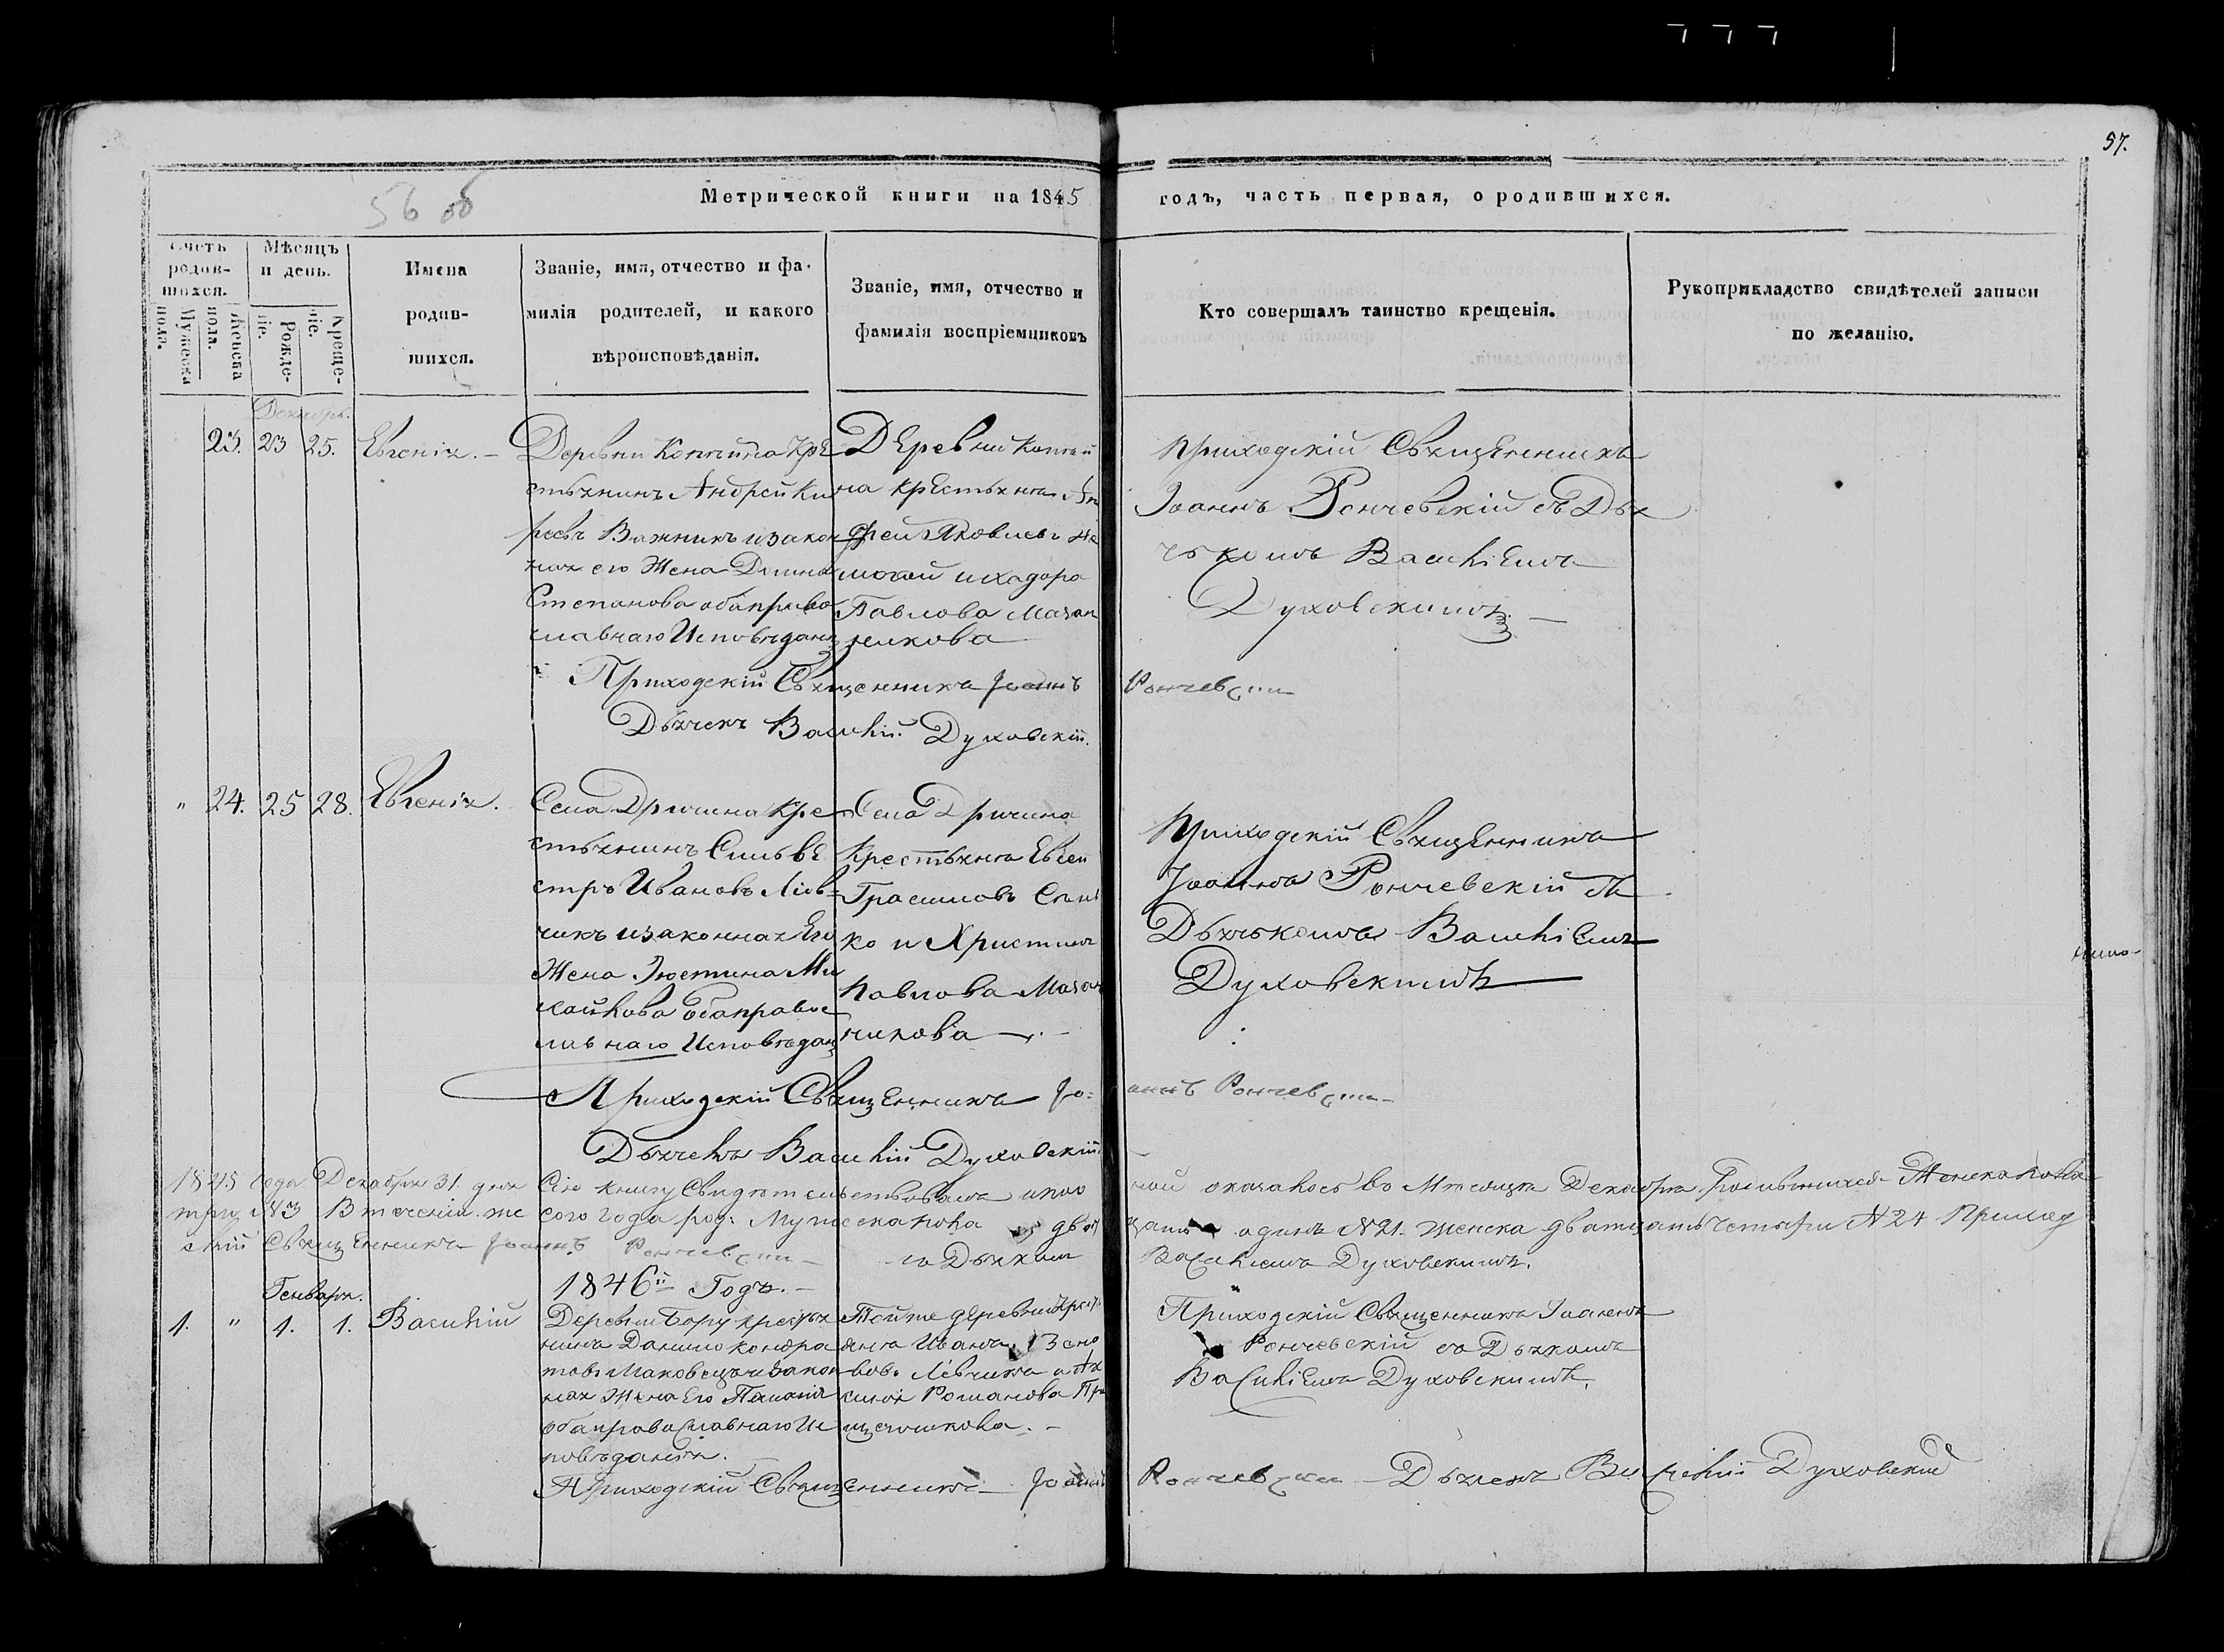 57.
56 об
Метрической книги на 1845 годъ, часть первая, о родившихся.
Счетъ родив-шихся.
Мужеска пола.
Женска пола.
Мѣсяцъ и день.
Рожде-ніе.
Креще-ніе.
Имена родив-шихся.
Званіе, имя, отчество и фа-милія родителей, и какого вѣроисповѣданія.
Званіе, имя, отчество и фамилія воспріемниковъ
Кто совершалъ таинство крещенія.
Рукоприкладство свидѣтелей записи по желанію.
Декабрь.
23. 23 25. Евгенія.
Деревни Копчина кре
стьянинъ Андрей Ки
реевъ Важникъ изакон
ная его Жена Домна
Степанова оба право
славнаго Исповѣдан
Деревни Копчи
на крестьянинъ
Яковлевъ
Павлова Мазан
никова
Приходскій Священникъ
Іоаннъ Рончевскій съ Дья
чькомъ Василіемъ
Духовскимъ.
Приходскій Священникъ Іоаннъ Рончевскій
Дьячекъ Василій Духовскій.
" 24. 25 28. Евгенія.
Села Дричина кре
стьянинъ Сильве
стръ Ивановъ Лев
чикъ изаконная Его
Жена Іюстина Ми
хайлова обаправо
славнаго Исповѣдан
Села Дричина
крестьянинъ Евсей
Грасимовъ
ко и Христина
Павлова Мазан
никова
Приходскій Священникъ
Іоаннъ Рончевскій съ
Дьячькомъ Василіемъ
Духовскимъ
Приходскій Священникъ Іо=аннъ Рончевскій
Дьячекъ Василій Духовскій
1845 года Декабря 31. дня Сію книгу Свидѣтельствовалъ
оказалось во Мѣсяцѣ Декабрѣ Родившихся Женска пола
три №3 Втеченіи же сего года род: Мужеска пола двад
цать одинъ №21. Женска двадцать четыри №24 Приход
скій Священникъ Іоаннъ Рончевскій со Дьякомъ Василіемъ Духовскимъ.
1846й Годъ.
Генваря.
1. " 1. 1. Василій
Деревни Бору крестья
нинъ Данило Кондра
товъ Маковецъ изакон
ная Жена Его
обаправославнаго Ис
повѣданія.
Тойже деревни крест
янинъ Иванъ Зено
вовъ Левчикъ и
Романова
Приходскій Священникъ Іоаннъ
Рончевскій со Дьякомъ
Василіемъ Духовскимъ.
Приходскій Священникъ Іоаннъ Рончевскій Дьячекъ Василій Духовскій